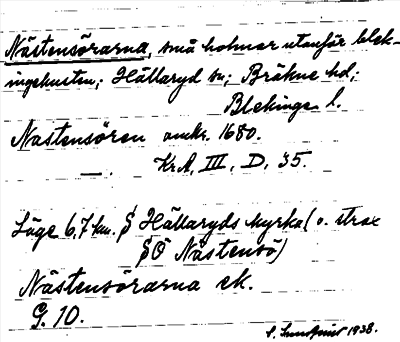 Nästensörarna, små holmar utanför blek-
ingekusten; Hällaryd sn; Bräkne hd;
Blekinge l.
Nastensören omkr. 1680.
Kr.A, III, D, 35.
Läge 6,7 km. S Hällaryds kyrka (o. strax
SÖ Nästensö)
Nästensörarna ek.
G. 10.
S. Sundqvist 1938.